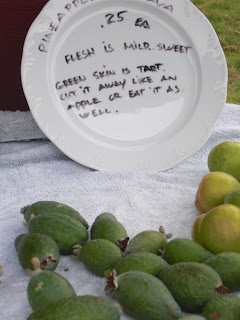 PINEAPPLE GUAVA
.25 EA
FLESH IS MILD, SWEET
GREEN SKIN IS TART.
CUT IT AWAY LIKE AN
APPLE OR EAT IT AS
WELL.